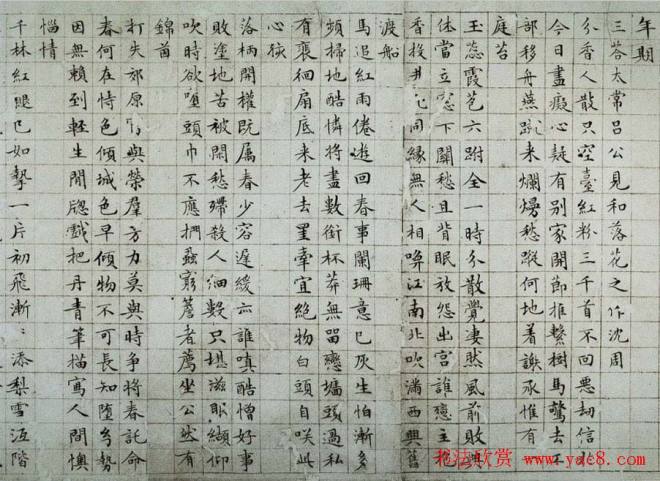 年期
三荅太常呂公見和落花之作沈周
分香人散只空臺紅粉三千首不回惡劫信於
今日盡癡心疑有別家開節推繫樹馬驚去工
部移舟燕蹴来爛熳愁蹤何地着謝承惟有
庭苔
玉蕊霞苞六跗全一時分散覺凄然風前敗興
休當立窓下關愁且背眠放怨出宮誰戀主
香投井死同緣無人相喚江南北吹滿西興舊
渡船
馬追紅雨倦遊回春事闌珊意已灰生怕漸多
頻掃地酷憐將盡數銜杯莽無留戀墻頭過私
有裵徊扇底来老去罣牽宜絶物白頭自咲此
心
落柄開權既属春少容遲緩亦誰嗔酷憎好事
敗塗地苦被閑愁殢殺人細數只堪滋眼纈仰
吹時欲墮頭巾不應捫蝨窮簷者薦坐公然有
錦茵
打失郊原與榮羣芳力莫與時争將春託命
春何在恃色傾城色早傾物不可長知墮勢
因無賴到輕生閒牕戲把丹青筆描寫人間懊
惱情
千林紅褪已如一片初飛漸:添梨雪沍階
书法欣赏 www.yac8.com